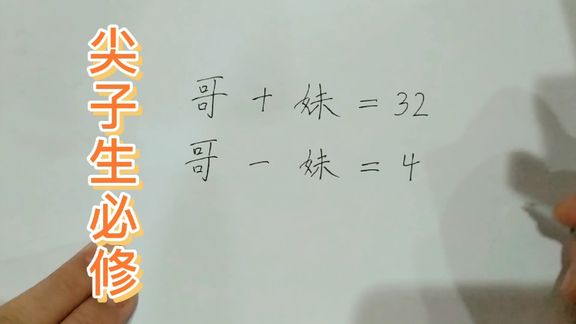 尖子生必修
哥 + 妹 = 32
哥 - 妹 = 4